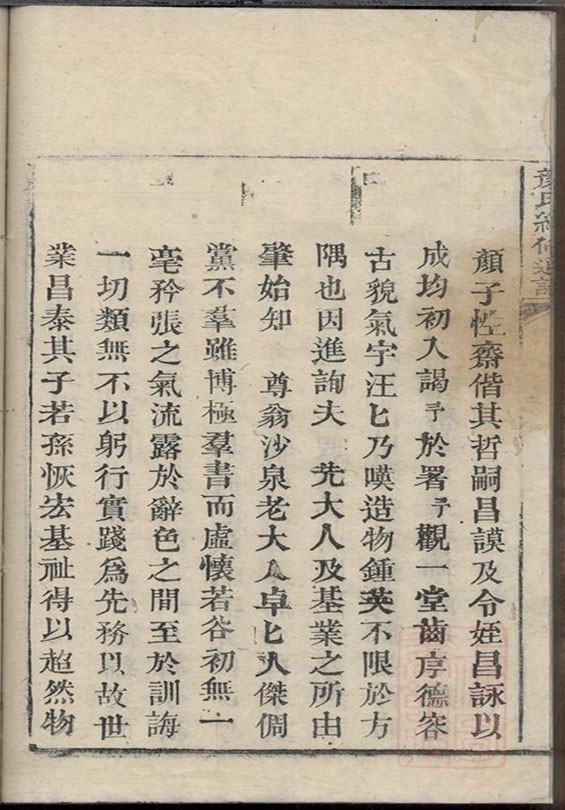 顏氏續修通譜
顏子性齋偕其哲嗣昌謨及令姪昌詠以
成均初入謁予於署予觀一堂齒序德容
古貌氣宇汪匕乃嘆造物鍾英不限於方
隅也因進詢夫 先大人及基業之所由
肇始知 尊翁沙泉老大人卓匕人傑倜
黨不羣雖博極羣書而虛懷若谷初無一
毫矜張之氣流露於辭色之間至於訓誨
一切類無不以躬行實踐爲先務以故世
業昌泰其子若孫恢宏基祉得以超然物